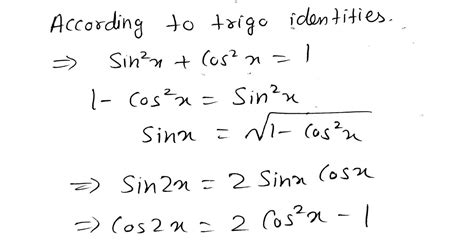 According to trigo identities.
⇒ Sin²x + Cos²x = 1
1 - Cos²x = Sin²x
Sinx = √1 - Cos²x
⇒ Sin2x = 2 Sinx Cosx
⇒ Cos2x = 2 Cos²x - 1